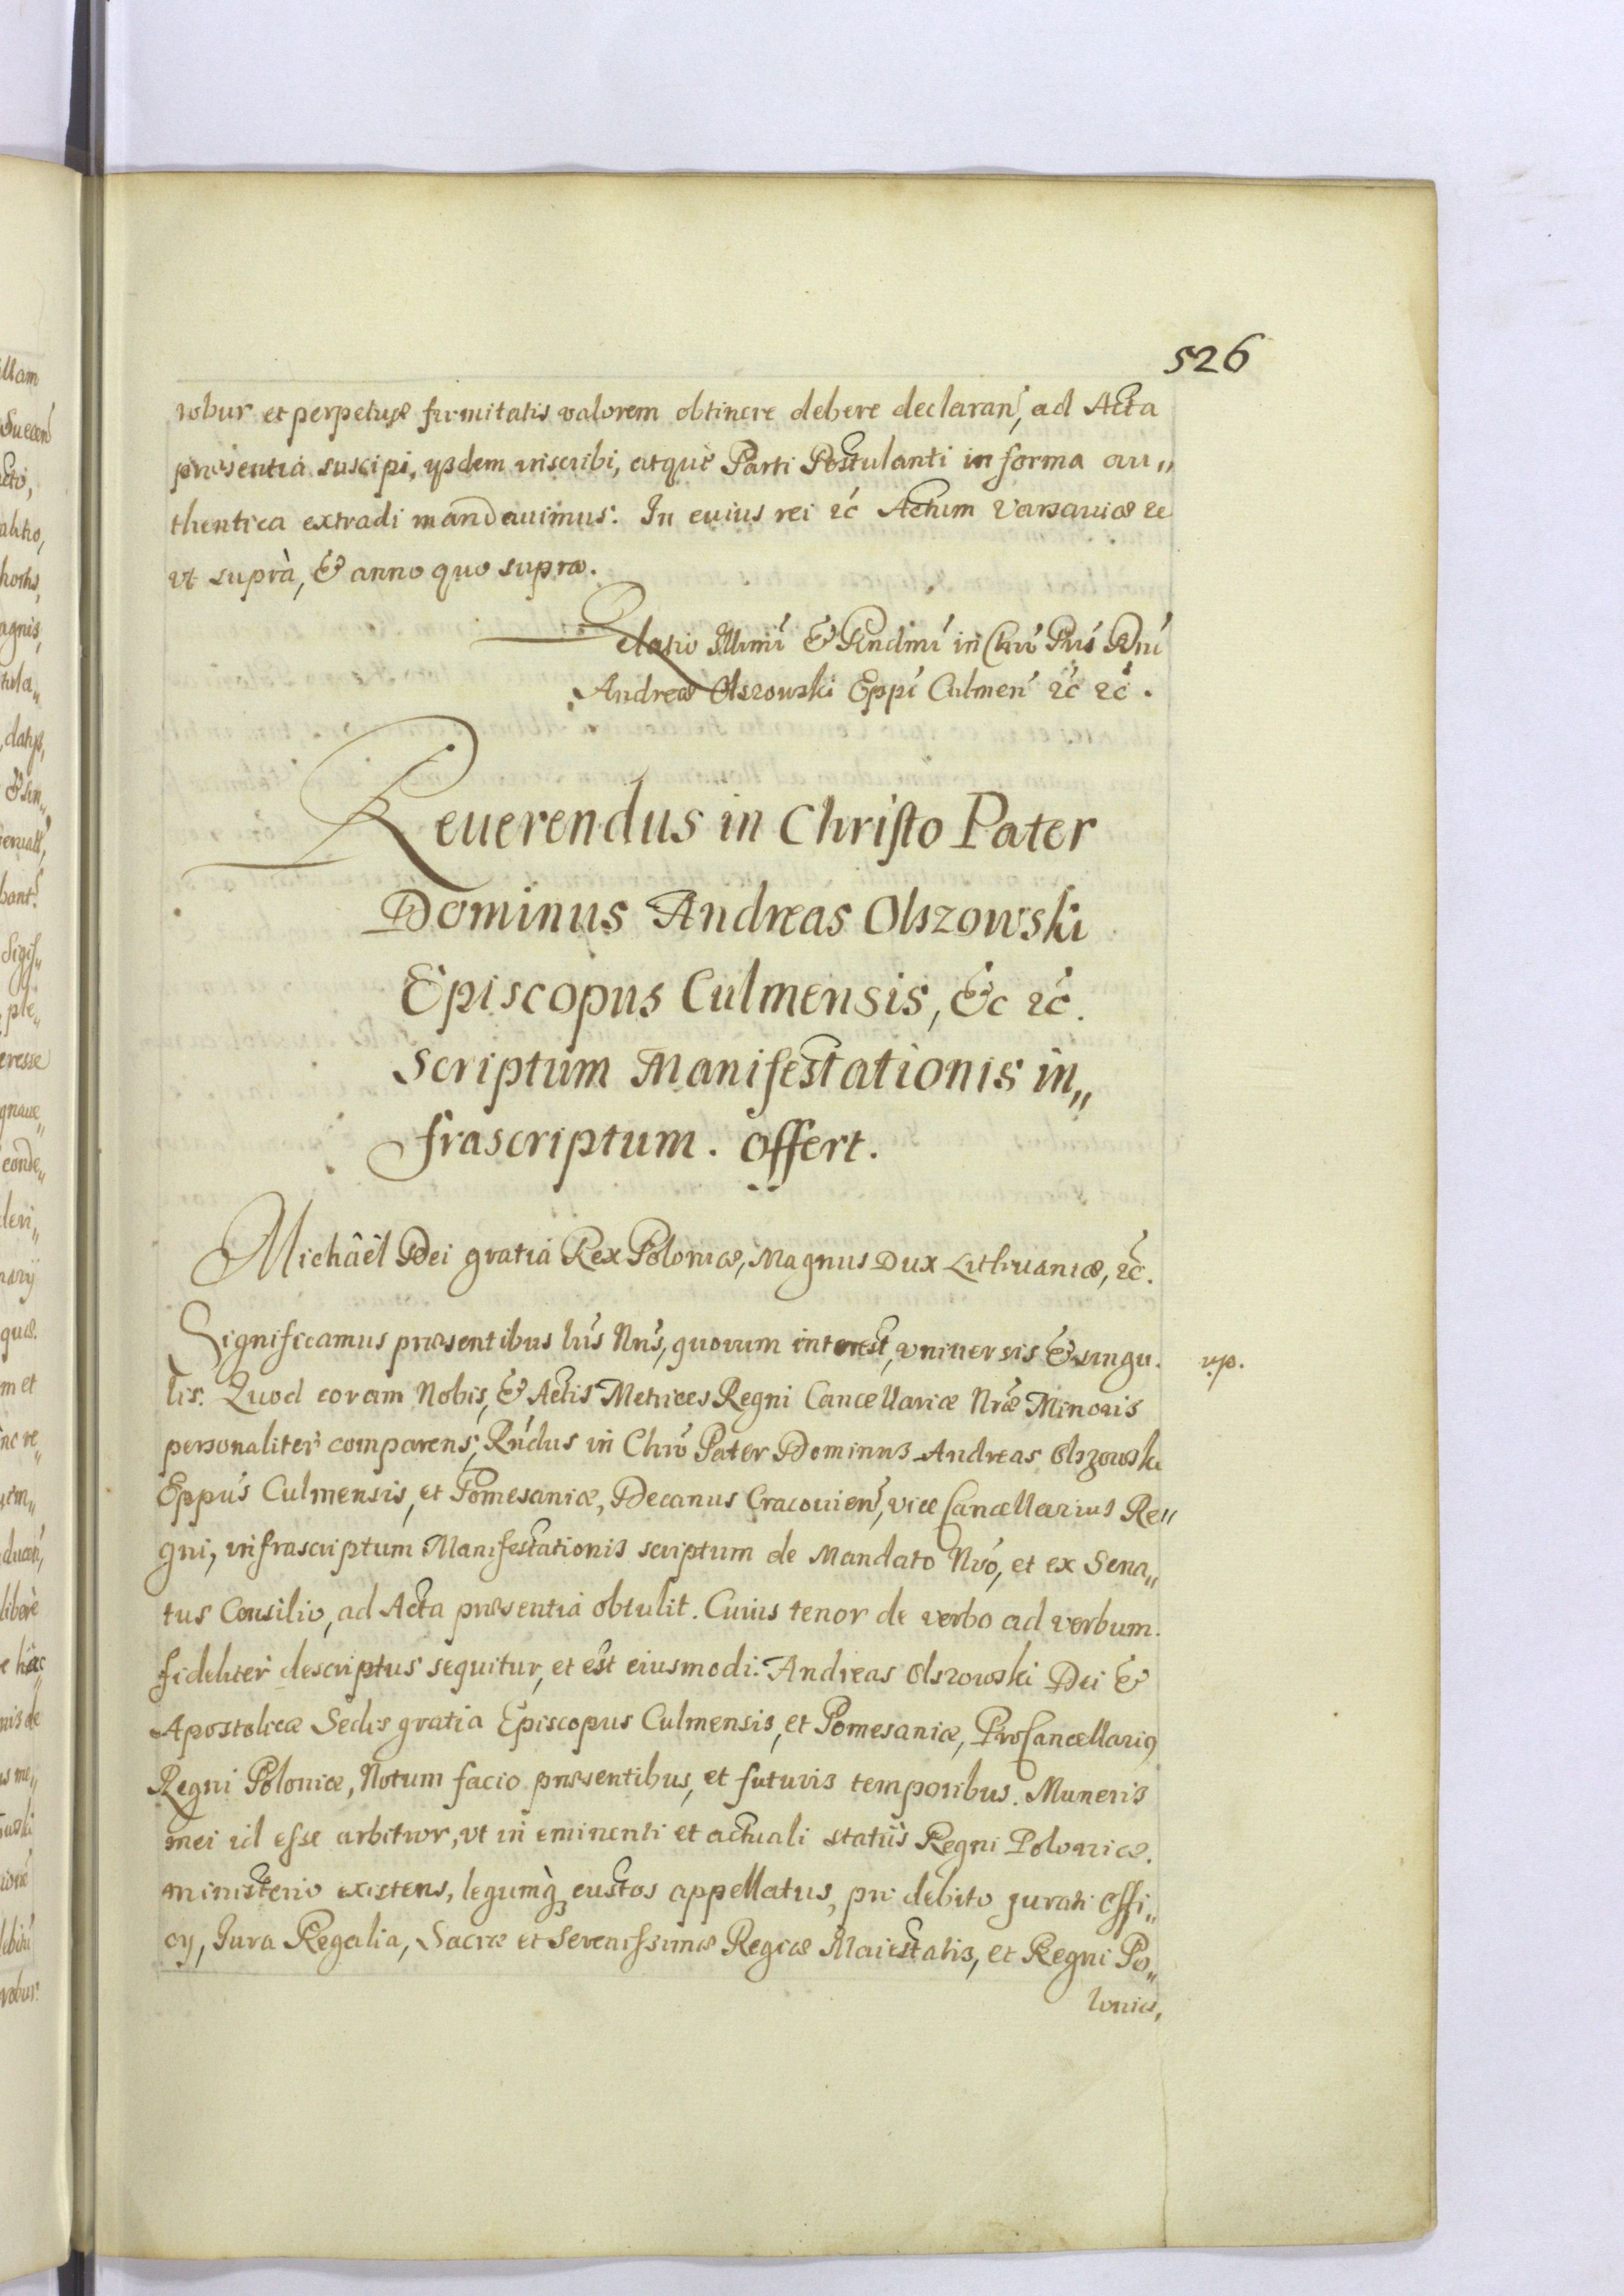 526
robur et perpetuæ firmitatis valorem obtinere debere declaran, ad Acta
præsentia suscipi, ijsdem inscribi, atquè Parti Postulanti in forma au„
thentica extradi mandauimus. In cuius rei &c Actum Varsauiæ &c
vt suprà, & anno quo supra.
Relatio Illmi & Rndmi in Chro Pris Dni
Andreæ Olszowski Eppi Culmen &c &c.
Reuerendus in Christo Pater
Dominus Andreas Olszowski
Episcopus Culmensis, &c &c.
Scriptum Manifestationis in„
frascriptum. offert.
Michâêl Dei gratia Rex Poloniæ, Magnus Dux Lithuaniæ, &c.
Significamus præsentibus lris Nris, quorum interest, vniuersis & singu.
lis. Quod coram Nobis, & Actis Metrices Regni Cancellariæ Nræ Minoris
personaliter comparens, Rndus in Chro Pater Dominus Andreas Olszowski
Eppus Culmensis, et Pomesaniæ, Decanus Cracouien, vice Cancellarius Re„
gni, infrascriptum Manifestationis scriptum de Mandato Nro, et ex Sena„
tus Consilio, ad Acta præsentia obtulit. Cuius tenor de verbo ad verbum.
fideliter descriptus sequitur, et est eiusmodi. Andreas Olszowski Dei &
Apostolicæ Sedis gratia Episcopus Culmensis, et Pomesaniæ, ProCancellarius
Regni Poloniæ, Notum facio præsentibus, et futuris temporibus. Muneris
mei id esse arbitror, vt in eminenti et actuali statûs Regni Poloniæ.
ministerio existens, legumq custos appellatus, pri debito jurati offi„
cij, Jura Regalia, Sacræ et Serenissimæ Regiæ Maiestatis, et Regni Po„
loniæ,